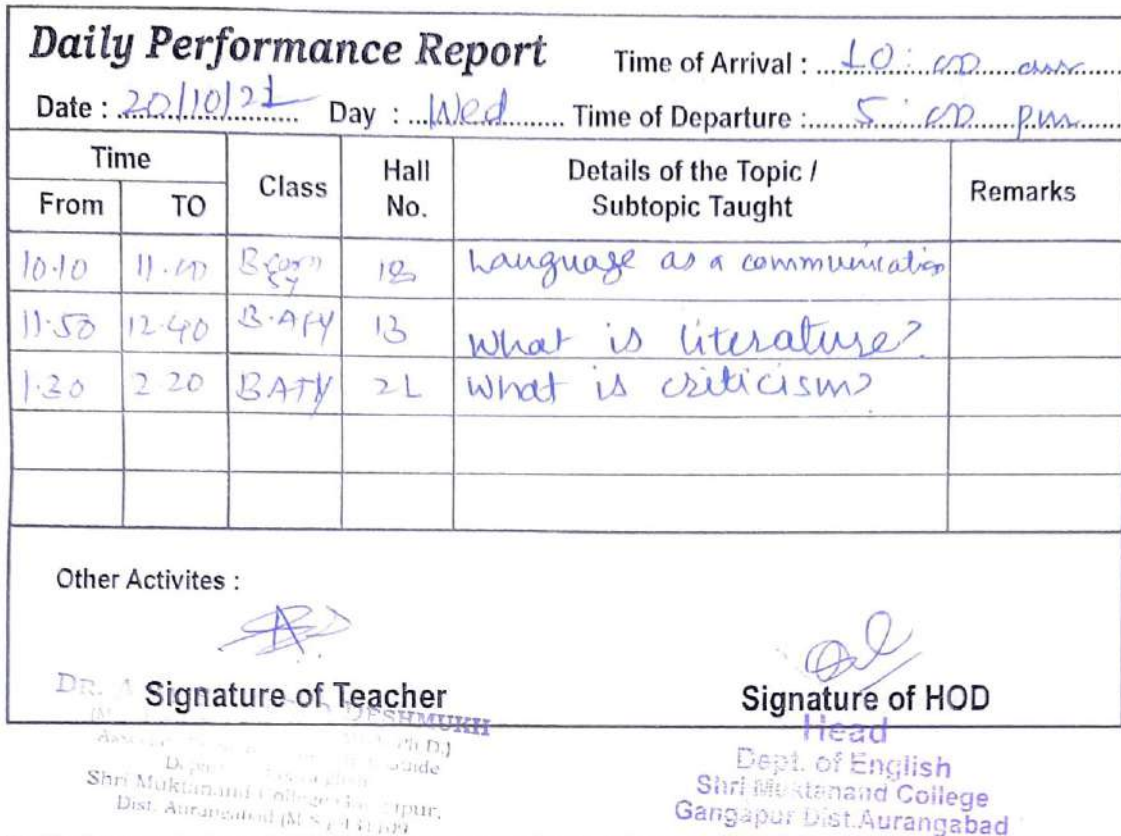 Daily Performance Report Time of Arrival : 10 : 00 am
Date : 20/10/21 Day : Wed Time of Departure : 5 : 00 pm
Time Class Hall No. Details of the Topic / Subtopic Taught Remarks
From TO
10.10 11.00 Bcom SY 18 Language as a communication
11.50 12.40 B.A FY 13 What is literature?
1.30 2 20 BATY 21 What is criticism?
Other Activites :
Signature of Teacher Signature of HOD
DR. DESHMUKH
Head
Dept. of English
Shri Muktanand College
Gangapur Dist.Aurangabad
Ph.D.)
Guide
Shri Muktanand College
Dist. Aurangabad